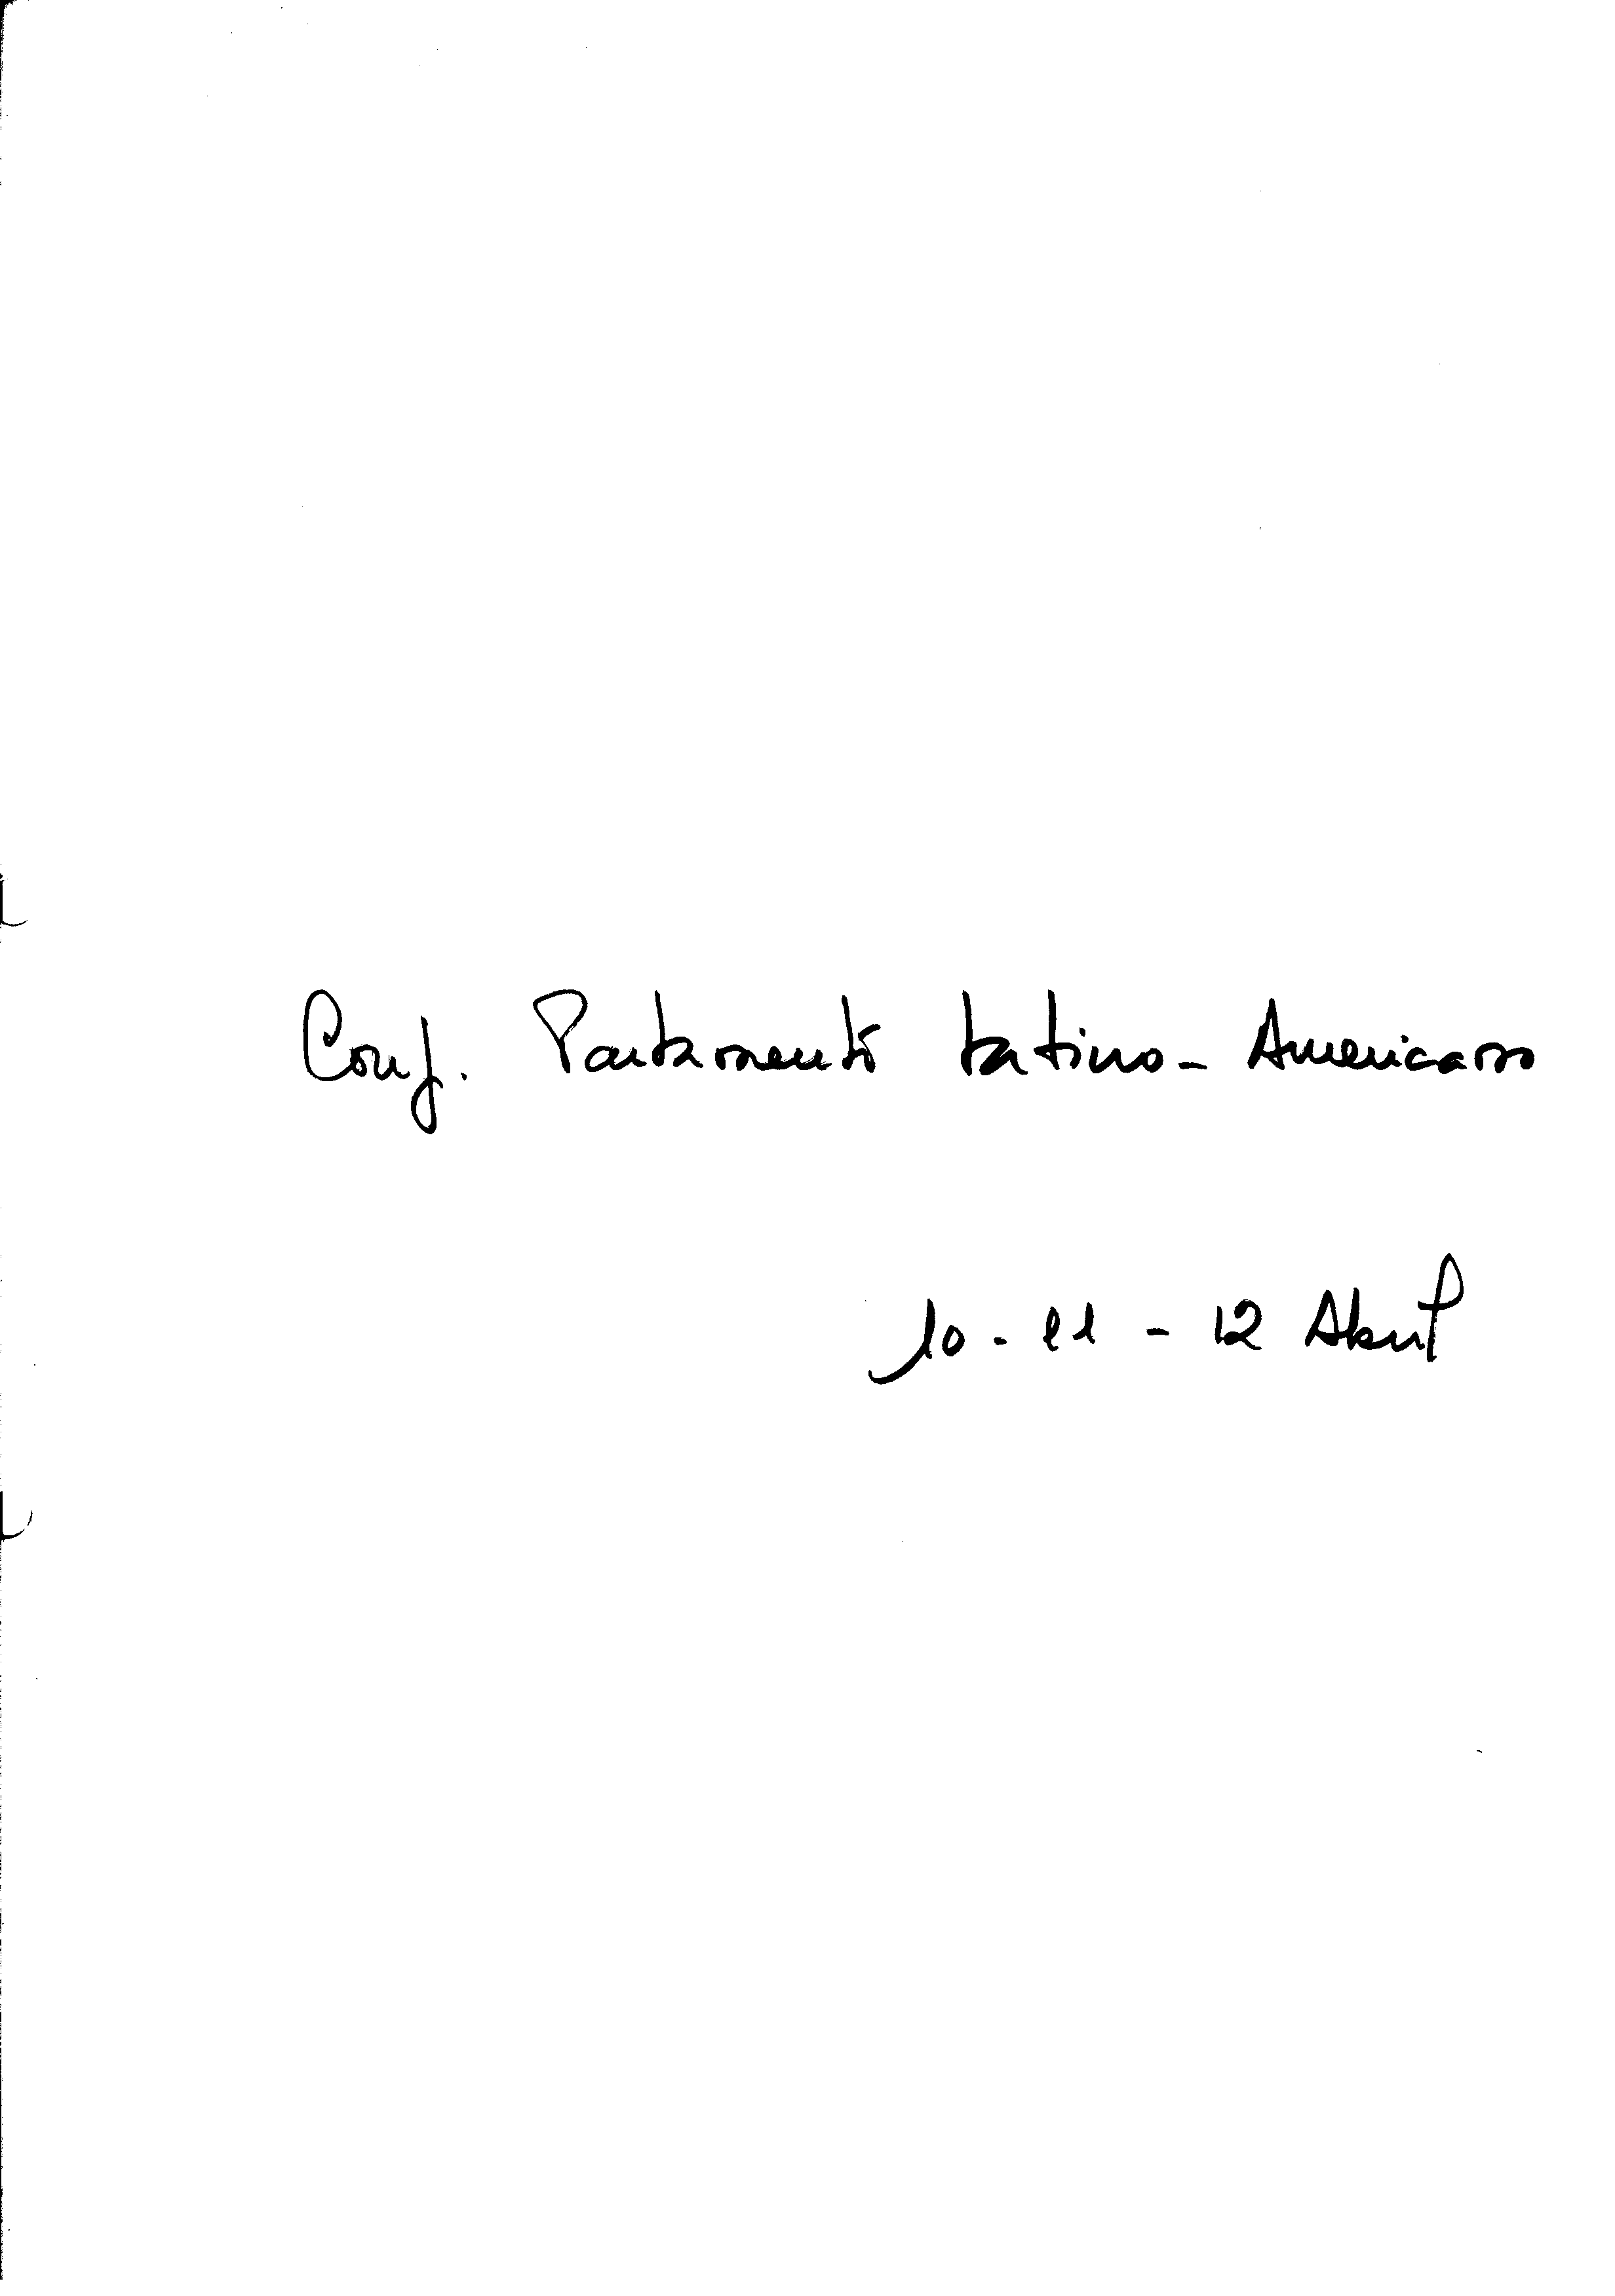 Conf. Parlamento Latino-Americano
10-11-12 Abril